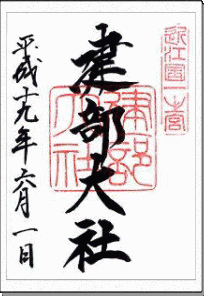 近江国一之宮
建部大社
建部大社
平成十九年六月一日